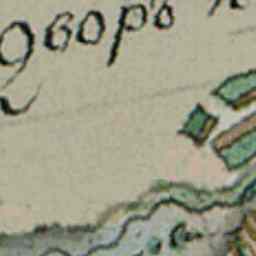 дворъ